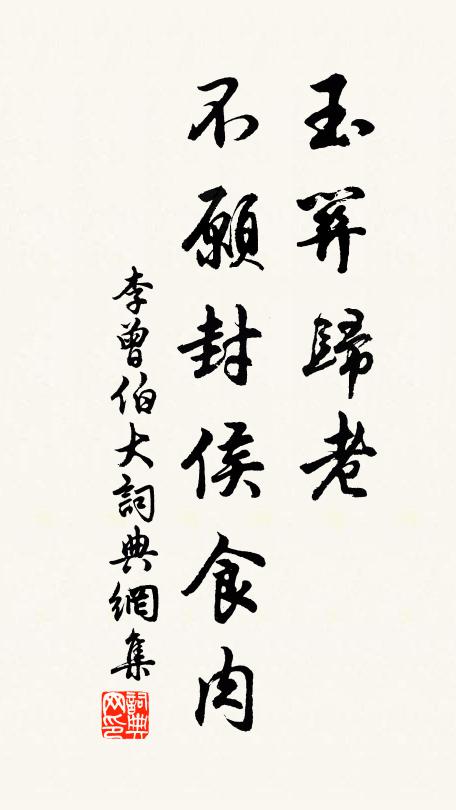 玉關歸老
不願封侯食肉
李曾伯大詞典網集
詞典
网印